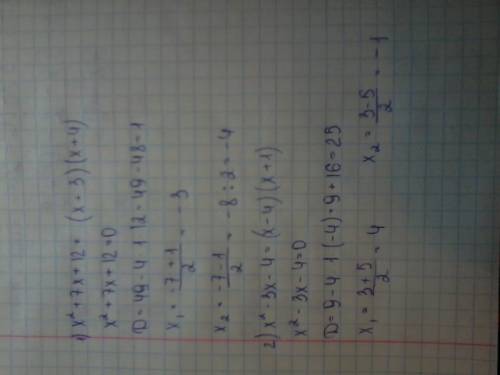 1) x²+7x+12 = (x-3)(x+4)
x²+7x+12=0
D=49-4·1·12=49-48=1
x₁ = (-7+1)/2 = -3
x₂ = (-7-1)/2 = -8:2=-4
2) x²-3x-4=(x-4)(x+1)
x²-3x-4=0
D=9-4·1·(-4)=9+16=25
x₁ = (3+5)/2 = 4 x₂ = (3-5)/2 = -1